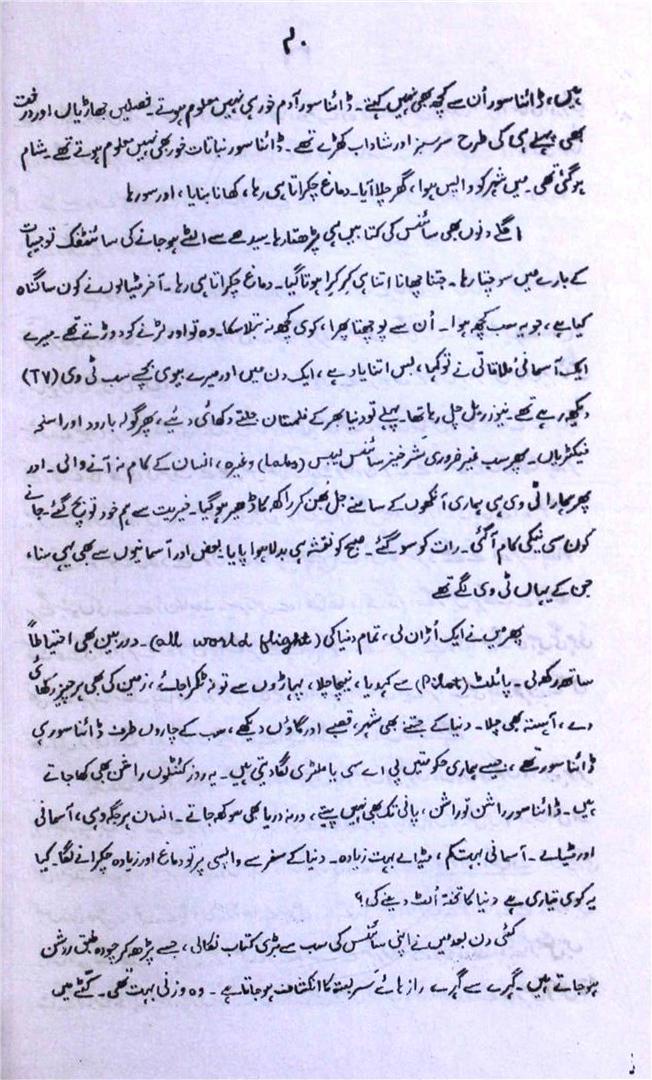 ۲۰
ہیں، ڈائنا سور اُن سے کچھ بھی نہیں کہتے۔ ڈائنا سور آدم خور ہی نہیں معلوم ہوتے۔ فصلیں جھاڑیاں اور درخت
بھی پہلے ہی کی طرح سرسبز اور شاداب کھڑے تھے۔ ڈائنا سور نباتات خور بھی نہیں معلوم ہوتے تھے۔ شام
ہو گئی تھی۔ میں شہر کو واپس ہوا، گھر چلا آیا۔ دماغ چکراتا ہی رہا، کھانا بنایا، اور سو رہا
اگلے دنوں بھی سائنس کی کتابیں ہی پڑھتا رہا۔ سیدھے سے الٹے ہو جانے کی سائنٹفک توجیہات
کے بارے میں سوچتا رہا۔ جتنا چھانا اتنا ہی کرکرا ہوتا گیا۔ دماغ چکراتا ہی رہا۔ آخر مٹیالوں نے کون سا گناہ
کیا ہے، جو یہ سب کچھ ہوا۔ اُن سے پوچھتا پھرا، کوی کچھ نہ بتلا سکا۔ وہ تو اور لڑنے کو دوڑتے تھے۔ میرے
ایک آسمانی ملاقاتی نے تو کہا، بس اتنا یاد ہے، ایک دن میں اور میرے بیوی بچے سب ٹی وی (TV)
دیکھ رہے تھے۔ نیوز ریل چل رہا تھا۔ پہلے تو دنیا بھر کے فلمستان جلتے دکھائی دیئے، پھر گولہ بارود اور اسلحہ
فیکٹریاں۔ پھر سب غیر ضروری شر خیز سائنس لیبس (labs) وغیرہ، انسان کے کام نہ آنے والی۔ اور
پھر ہمارا ٹی وی ہی ہماری آنکھوں کے سامنے جل بھن کر راکھ کا ڈھیر ہو گیا۔ خیریت سے ہم خود تو بچ گئے۔ جانے
کون سی نیکی کام آ گئی۔ رات کو سو گئے۔ صبح کو نقشہ ہی بدلا ہوا پایا بعض اور آسمانیوں سے بھی یہی سنا،
جن کے یہاں ٹی وی لگے تھے
پھر میں نے ایک اُڑان لی، تمام دنیا کی (all world flight)۔ دوربین بھی احتیاطاً
ساتھ رکھ لی۔ پائلٹ (Pilot) سے کہہ دیا، نیچا چلا، پہاڑوں سے تو نہ ٹکرا جائے، زمین کی بھی ہر چیز دکھائی
دے، آہستہ بھی چلا۔ دنیا کے جتنے بھی شہر، قصبے اور گاوں دیکھے، سب کے چاروں طرف ڈائنا سور ہی
ڈائنا سور تھے، جیسے ہماری حکومتیں پی اے سی یا ملٹری لگا دیتی ہیں۔ یہ روز کنٹلوں راشن بھی کھا جاتے
ہیں۔ ڈائنا سور راشن تو راشن، پانی تک بھی نہیں پیتے، ورنہ دریا بھی سوکھ جاتے۔ انسان ہر جگہ وہی، آسمانی
اور مٹیالے۔ آسمانی بہت کم، مٹیالے بہت زیادہ۔ دنیا کے سفر سے واپسی پر تو دماغ اور زیادہ چکرانے لگا۔ کیا
یہ کوی تیاری ہے دنیا کا تختہ اُلٹ دینے کی؟
کئی دن بعد میں نے اپنی سائنس کی سب سے بڑی کتاب نکالی، جسے پڑھ کر چودہ طبق روشن
ہو جاتے ہیں۔ گہرے سے گہرے راز ہائے سربستہ کا انکشاف ہو جاتا ہے۔ وہ وزنی بہت تھی۔ گٹے میں